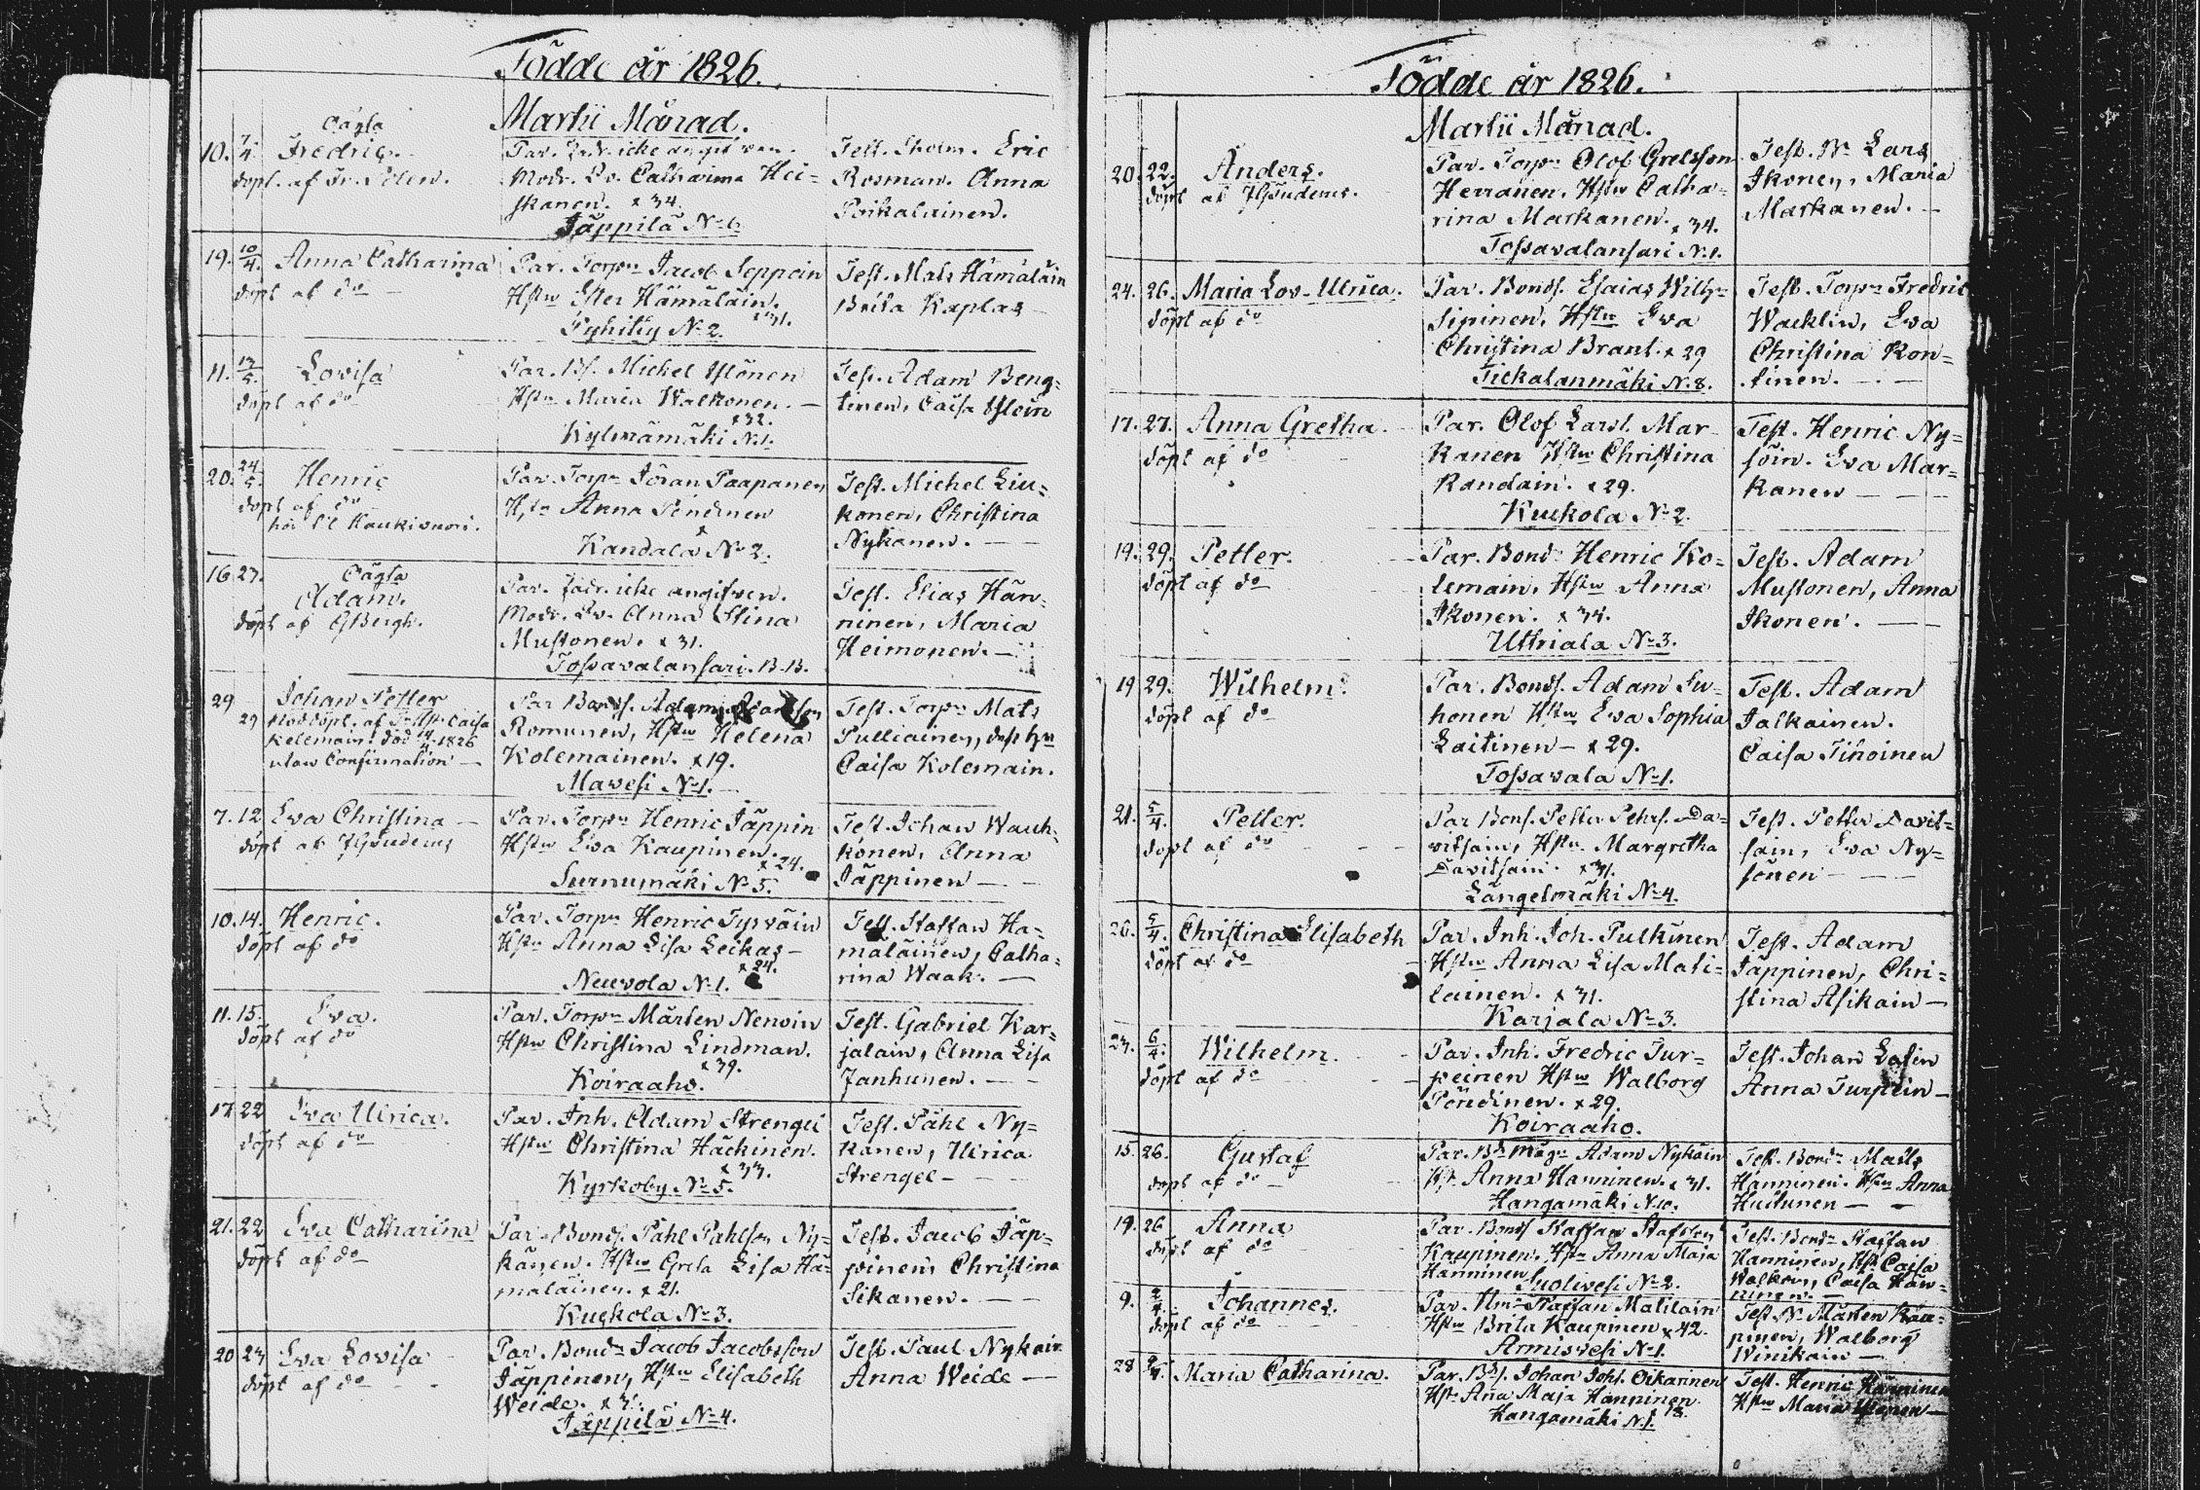 Födde år 1826.
Martii Månad.
10. 7/4 Oägta
Fredric.
döpt. af Fr. Polen.
Par. Fadr. icke angifven.
Modr. Lv. Catharina Hei=
skanen. x 34.
Jäppilä No 6.
Test. Eric
Rosman. Anna
Poikalainen.
19. 10/4. Anna Catharina
döpt af do
Par. Torpn Jacob Seppoin
Hstu Ester Hämäläin.
x 31.
Pyhitty No 2.
Test. Mats Hämäläin
Brita Kaplas
11. 17/5. Lovisa
döpt af do
Par. Bs. Michel Ylönen
Hstu Maria Walkonen.
x 32.
Kylmämäki No 1.
Test. Adam Beng=
tinen, Caisa Ylöin
20. 24/5. Henric
döpt af do
hos Haukivuori.
Par. Torpn Jöran Paapanen
Hstu Anna Pöndinen
Kandala No 2.
Test. Michel Liu=
konen, Christina
Nykänen.
16. 27. Oägta
Adam.
döpt af GBergh.
Par. Fadr. icke angifven.
Modr. Lv. Anna Stina
Mustonen. x 31.
Tossavalansari. B.B.
Test. Elias Hän=
ninen, Maria
Heimonen.
29 29 Johan Petter
Nöddöpt. af Caisa
Kolemain. död 14/4 1826
utan Confirmation
Par Bonds. Adam Adamsson
Romunen, Hstu Helena
Kolemainen. x 19.
Mavesi No 1.
Test. Torpn Mats
Pulliainen, dess hu
Caisa Kolemain.
7. 12 Eva Christina
döpt af JGSudenus
Par. Torpn Henric Jäppin
Hstu Eva Kaupinen.
x 24.
Surnumäki No 5.
Test. Johan Wauh=
konen, Anna
Jäppinen
10. 14. Henric.
döpt af do
Par. Torpn Henric Tyrväin
Hstu Anna Lisa Leikas
x 24.
Neuvola No 1.
Test. Staffan Hä=
mäläinen, Catha=
rina Waak.
11. 15. Eva.
döpt af do
Par. Torpn Mårten Nenoin
Hstu Christina Lindman.
x 39.
Koiraaho.
Test. Gabriel Kar=
jalain, Anna Lisa
Janhunen.
17. 22 Eva Ulrica.
döpt af do
Par. Inh. Adam Strengel
Hstu Christina Häckinen.
x 33.
Kyrkoby No 5.
Test. Påhl Ny=
kanen, Ulrica
Strengel
21. 22. Eva Catharina
döpt af do
Par. Bonds. Påhl Påhlson Ny=
känen. Hstu Greta Lisa Hä=
mäläinen. x 21.
Kuckola No 3.
Test. Jacob Jäp=
pinen, Christina
Sikanen.
20 23 Eva Lovisa
döpt af do
Par. Bondn Jacob Jacobsson
Jäppinen, Hstu Elisabeth
Weide.
Jäppilä No 4.
Test. Paul Nykäin
Anna Weide
Födde år 1826.
Martii Månad.
20. 22. Anders.
döpt af JGSudenus.
Par. Torpn Olof Gretsson
Herranen. Hstu Catha=
rina Markanen. x 34.
Tossavalansari No 1.
Test. Nn Lars
Ikonen, Maria
Markanen.
24. 26. Maria Lov. Ulrica.
döpt af do
Par. Bonds. Esaias Wilhm
Sipinen, Hstu Eva
Christina Brant. x 29
Tickalanmäki No 8.
Test. Torpn Fredric
Wacklin, Eva
Christina Kon=
tinen.
17. 27. Anna Gretha
döpt af do
Par. Olof Larsl. Mar=
kanen Hstu Christina
Kandain. x 29.
Kuckola No 2.
Test. Henric Ny=
söin. Eva Mar=
kanen
19. 29. Petter.
döpt af do
Par. Bond Henric Ko=
lemain, Hstu Anna
Ikonen. x 34.
Uttriala No 3.
Test. Adam
Mustonen, Anna
Ikonen.
19 29. Wilhelm.
döpt af do
Par. Bonds. Adam Su=
honen Hstu Eva Sophia
Laitinen x 29.
Tossavala No 1.
Test. Adam
Jalkainen.
Caisa Tihoinen
21. 5/4. Petter.
döpt af do
Par Bons. Petter Pehrs. Da=
vitsain, Hstu. Margretha
Davitsain. x 31.
Längelmäki No 4.
Test. Petter Davit=
sain, Eva Ny=
sönen
26. 5/4. Christina Elisabeth
döpt af do
Par. Inh. Joh. Pulkinen
Hstu Anna Lisa Mati=
lainen. x 31.
Karjala No 3.
Test. Adam
Jäppinen, Chri=
stina Asikain
27. 6/4. Wilhelm.
döpt af do
Par. Inh. Fredric Tur=
peinen Hstu Walborg
Pöndinen. x 29.
Koiraaho.
Test. Johan
Anna Turpein
15. 26. Gustaf
döpt af do
Par. Bn Måg Adam Nykäin
Hst. Anna Hänninen. x 31.
Hangamäki No 10.
Test. Bondn Matts
Hänninen. Hstu Anna
Huttunen
19. 26. Anna
döpt af do
Par. Bonds Staffan Stafsson
Kaupinen. Hstu Anna Maja
Hänninen
Suolivesi No 2.
Test. Bondn Staffan
Hänninen, Hst. Caisa
Walkon, Caisa Hän=
ninen.
9. 2/4. Johannes.
döpt af do
Par. Staffan Matilain
Hstu Brita Kaupinen x 42.
Armisvesi No 1.
Test. Nn Mårten Kau=
pinen, Walborg
Winikain
28 Maria Catharina.
Par. Bds. Johan Johs. Oikarinen
Hst. Ana Maja Hänninen
Kangamäki No 1.
Test. Henric Hänninen
Hstu Maria Ylönen